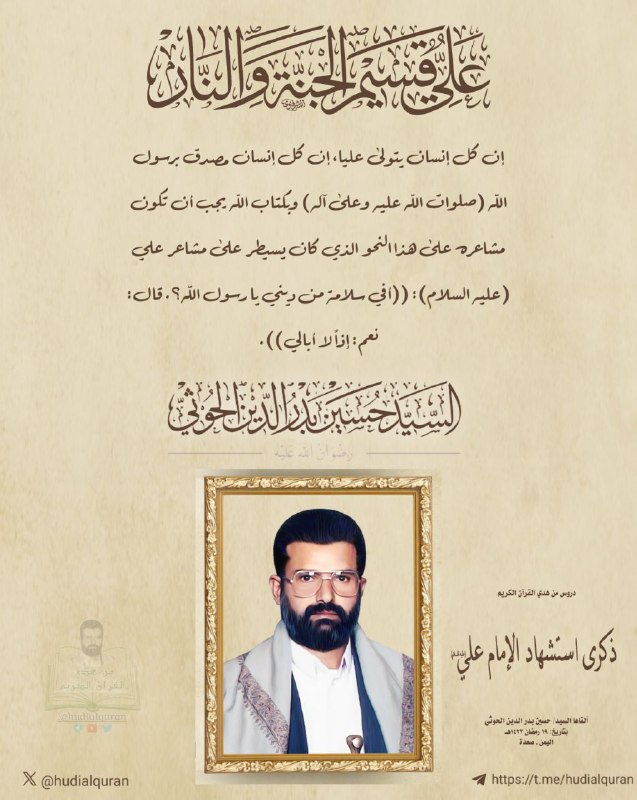 عَلِيٌّ قَسِيْمُ الْجَنَّةِ وَالنَّارِ
إن كل إنسان يتولى عليا، إن كل إنسان مصدق برسول
الله (صلوات الله عليه وعلى آله) وبكتاب الله يجب أن تكون
مشاعره على هذا النحو الذي كان يسيطر على مشاعر علي
(عليه السلام): ((أفي سلامة من ديني يا رسول الله؟. قال:
نعم: إذاً لا أبالي)).
السَّيِّد حُسَيْن بَدْرُ الدِّيْن الْحُوْثِيّ
رِضْوَانُ اللهِ عَلَيْهِ
دروس من هدي القرآن الكريم
ذكرى استشهاد الإمام علي
ألقاها السيد/ حسين بدر الدين الحوثي
بتاريخ: ١٩ رمضان ١٤٢٣هـ
اليمن ـ صعدة
@hudialquran
@hudialquran
https://t.me/hudialquran